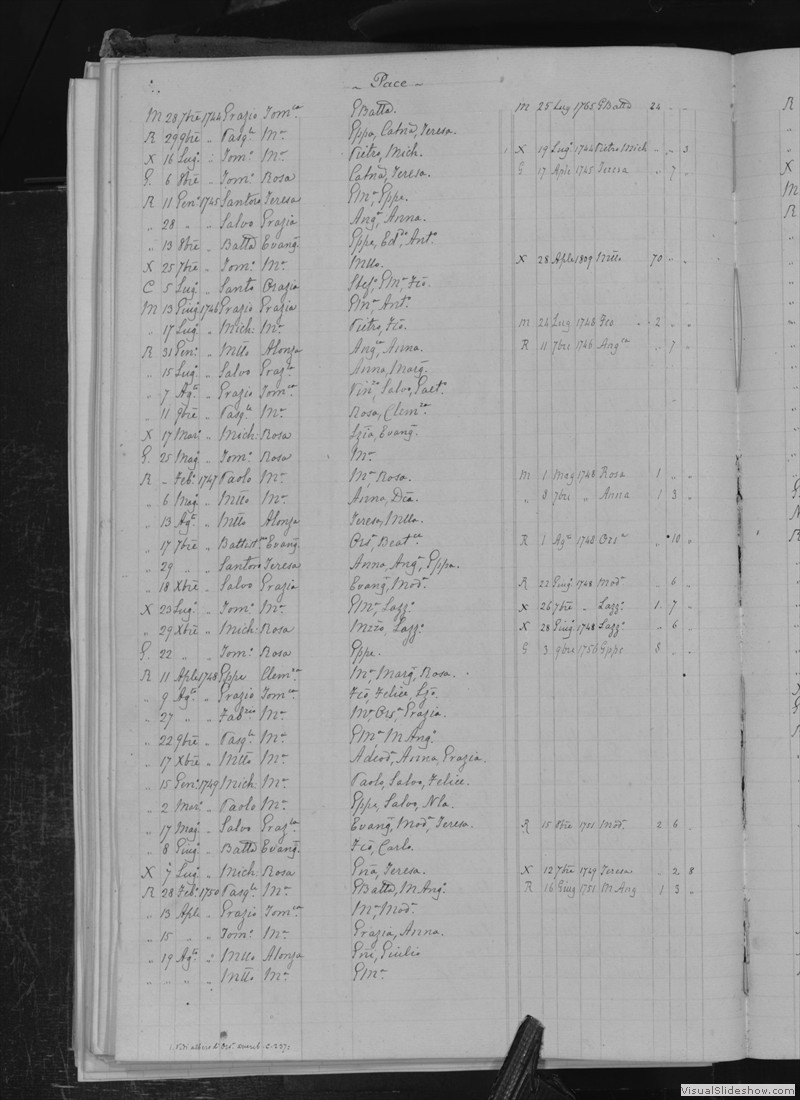 ~ Pace ~
M 28 7bre 1744 Grazio Tom.ca GBatta. M 25 Lug 1765 GBatta 24 " "
R 29 9bre " Pasq.le M.a Gppa, Catna, Teresa.
X 16 Lug.o " Tom.o M.a Pietro, Mich. X 19 Lug.o 1744 Pietro Mich " " 3
G. 6 8bre " Tom.o Rosa Catna, Teresa. G 17 Aple 1745 Teresa " 7 "
R 11 Gen.o 1745 Santoro Teresa GM.a, Gppe.
" 28 " " Salvo Grazia Ang.o, Anna.
" 13 8bre " Batta Evang. Gppe, Ed.do, Ant.o
X 25 7bre " Tom.o M.a Mtto. X 28 Aple 1809 Mtto 70 " "
C 5 Lug.o " Santo Orazia Stef.o, GM.a, Fco.
M 13 Giug 1746 Grazio Grazia GM.a, Ant.o
" 17 Lug.o " Mich. M.a Pietro, Fco. M 24 Lug 1748 Fco " 2 "
R 31 Gen.o " Mtto Alonza Ang.la, Anna. R 11 7bre 1746 Ang.la " 7 "
" 15 Lug.o " Salvo Graz.la Anna, Marg.
" 7 Ag.to " Grazio Tom.ca Vin.zo, Salvo, Gaet.o
" 11 9bre " Pasq.le M.a Rosa, Clem.za
X 17 Mar.o " Mich. Rosa Lzia, Evang.
G. 25 Mag.o " Tom.o Rosa M.a
R " Feb.o 1747 Paolo M.a M.a Rosa. M 1 Mag 1748 Rosa 1 " "
" 6 Mag.o " Mtto M.a Anna, Dea. " 8 7bre " Anna 1 3 "
" 13 Ag.to " Mtto Alonza Teresa, Mtta.
" 17 7bre " Battist.na Evang. Ors.a, Beat.ce R 1 Ag.to 1748 Ors.a " 10 "
" 29 " " Santoro Teresa Anna, Ang.o, Gppa.
" 18 Xbre " Salvo Grazia Evang, Mod.o R 22 Giug 1748 Mod.o " 6 "
X 23 Lug.o " Tom.o M.a GM.a, Lazz.o X 26 7bre " Lazz.o 1 7 "
" 29 Xbre " Mich. Rosa Lazz.o X 28 Giug 1748 Lazz.o " 6 "
G. 22 " " Tom.o Rosa Gppe. G 3 9bre 1756 Gppe 8 " "
R 11 Aple 1748 Gppe Clem.za M.a, Marg, Rosa.
" 9 Ag.to " Grazio Tom.ca Fco, Felice, Lzo.
" 27 " " Fab.zio M.a M.a, Ors.a, Grazia.
" 22 9bre " Pasq.le M.a GM.a M Ang.o
" 17 Xbre " Mtto M.a Adeod.o, Anna, Grazia.
" 15 Gen.o 1749 Mich. M.a Paolo, Salvo, Felice.
" 2 Mar.o " Paolo M.a Gppe, Salvo, Nla.
" 17 Mag.o " Salvo Graz.la Evang, Mod.o, Teresa. R 15 8bre 1751 Mod.o 2 6 "
" 8 Giug " Batta Evang. Fco, Carlo.
X 7 Lug.o " Mich. Rosa Gna, Teresa. X 12 7bre 1749 Teresa " 2 8
R 28 Feb.o 1750 Pasq.le M.a GBatta, M Ang.o R 16 Giug 1751 M. Ang 1 3 "
" 13 Aple " Grazio Tom.ca M.a, Mod.o
" 15 " " Tom.o M.a Grazia, Anna.
" 19 Ag.to " Mtto Alonza Gni, Giulio
" " " " Mtto M.a GM.a
VisualSlideshow.com